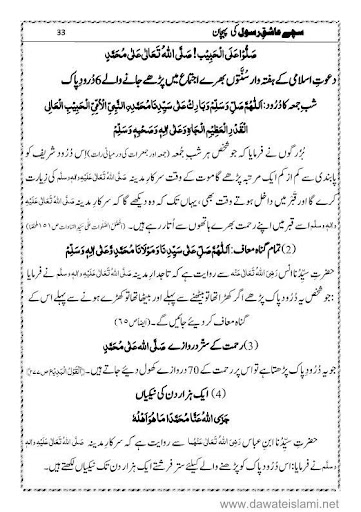 سچے عاشقِ رسول کی پہچان
33
صَلُّوْا عَلَی الْحَبِیْب! صَلَّی اللہُ تَعَالٰی عَلٰی مُحَمَّد
دعوتِ اسلامی کے ہفتہ وار سُنّتوں بھرے اجتماع میں پڑھے جانے والے 6 دُرودِ پاک
شبِ جمعہ کا دُرود: اَللّٰھُمَّ صَلِّ وَسَلِّمْ وَبَارِكْ عَلٰی سَیِّدِنَا مُحَمَّدِنِ النَّبِیِّ الْاُمِّیِّ الْحَبِیْبِ الْعَالِی
الْقَدْرِ الْعَظِیْمِ الْجَاہِ وَعَلٰی اٰلِہٖ وَصَحْبِہٖ وَسَلِّمْ
بُزرگوں نے فرمایا کہ جو شخص ہر شبِ جمعہ (جمعہ اور جمعرات کی درمیانی رات) اس دُرود شریف کو
پابندی سے کم از کم ایک مرتبہ پڑھے گا موت کے وقت سرکارِ مدینہ صَلَّی اللہُ تَعَالٰی عَلَیْہِ وَاٰلِہٖ وَسَلَّم کی زیارت
کرے گا اور قبر میں داخل ہوتے وقت بھی، یہاں تک کہ وہ دیکھے گا کہ سرکارِ مدینہ صَلَّی اللہُ تَعَالٰی عَلَیْہِ
وَاٰلِہٖ وَسَلَّم اُسے قبر میں اپنے رحمت بھرے ہاتھوں سے اُتار رہے ہیں۔ (اَفْضَلُ الصَّلَوات عَلٰی سَیِّدِ السَّادات ص ۱۵۱ مُلَخَّصًا)
(2) تمام گناہ معاف: اَللّٰھُمَّ صَلِّ عَلٰی سَیِّدِنَا وَمَوْلَانَا مُحَمَّدٍ وَّعَلٰی اٰلِہٖ وَسَلِّمْ
حضرتِ سیِّدُنا انس رَضِیَ اللہُ تَعَالٰی عَنْہُ سے روایت ہے کہ تاجدارِ مدینہ صَلَّی اللہُ تَعَالٰی عَلَیْہِ وَاٰلِہٖ وَسَلَّم نے فرمایا
: جو شخص یہ دُرودِ پاک پڑھے اگر کھڑا تھا تو بیٹھنے سے پہلے اور بیٹھا تھا تو کھڑے ہونے سے پہلے اس کے
گناہ معاف کر دیئے جائیں گے۔ (ایضا ص ۶۵)
(3) رحمت کے ستّر دروازے صَلَّی اللہُ عَلٰی مُحَمَّد
جو یہ دُرودِ پاک پڑھتا ہے تو اس پر رحمت کے 70 دروازے کھول دیئے جاتے ہیں۔ (اَلْقَوْلُ الْبَدِیْع ص ۲۷۷)
(4) ایک ہزار دن کی نیکیاں
جَزَی اللہُ عَنَّا مُحَمَّدًا مَا ھُوَ اَھْلُہٗ
حضرتِ سیِّدُنا ابنِ عباس رَضِیَ اللہُ تَعَالٰی عَنْہُمَا سے روایت ہے کہ سرکارِ مدینہ صَلَّی اللہُ تَعَالٰی عَلَیْہِ وَاٰلِہٖ
وَسَلَّم نے فرمایا: اس دُرودِ پاک کو پڑھنے والے کیلئے ستّر فرشتے ایک ہزار دن تک نیکیاں لکھتے ہیں۔
www.dawateislami.net